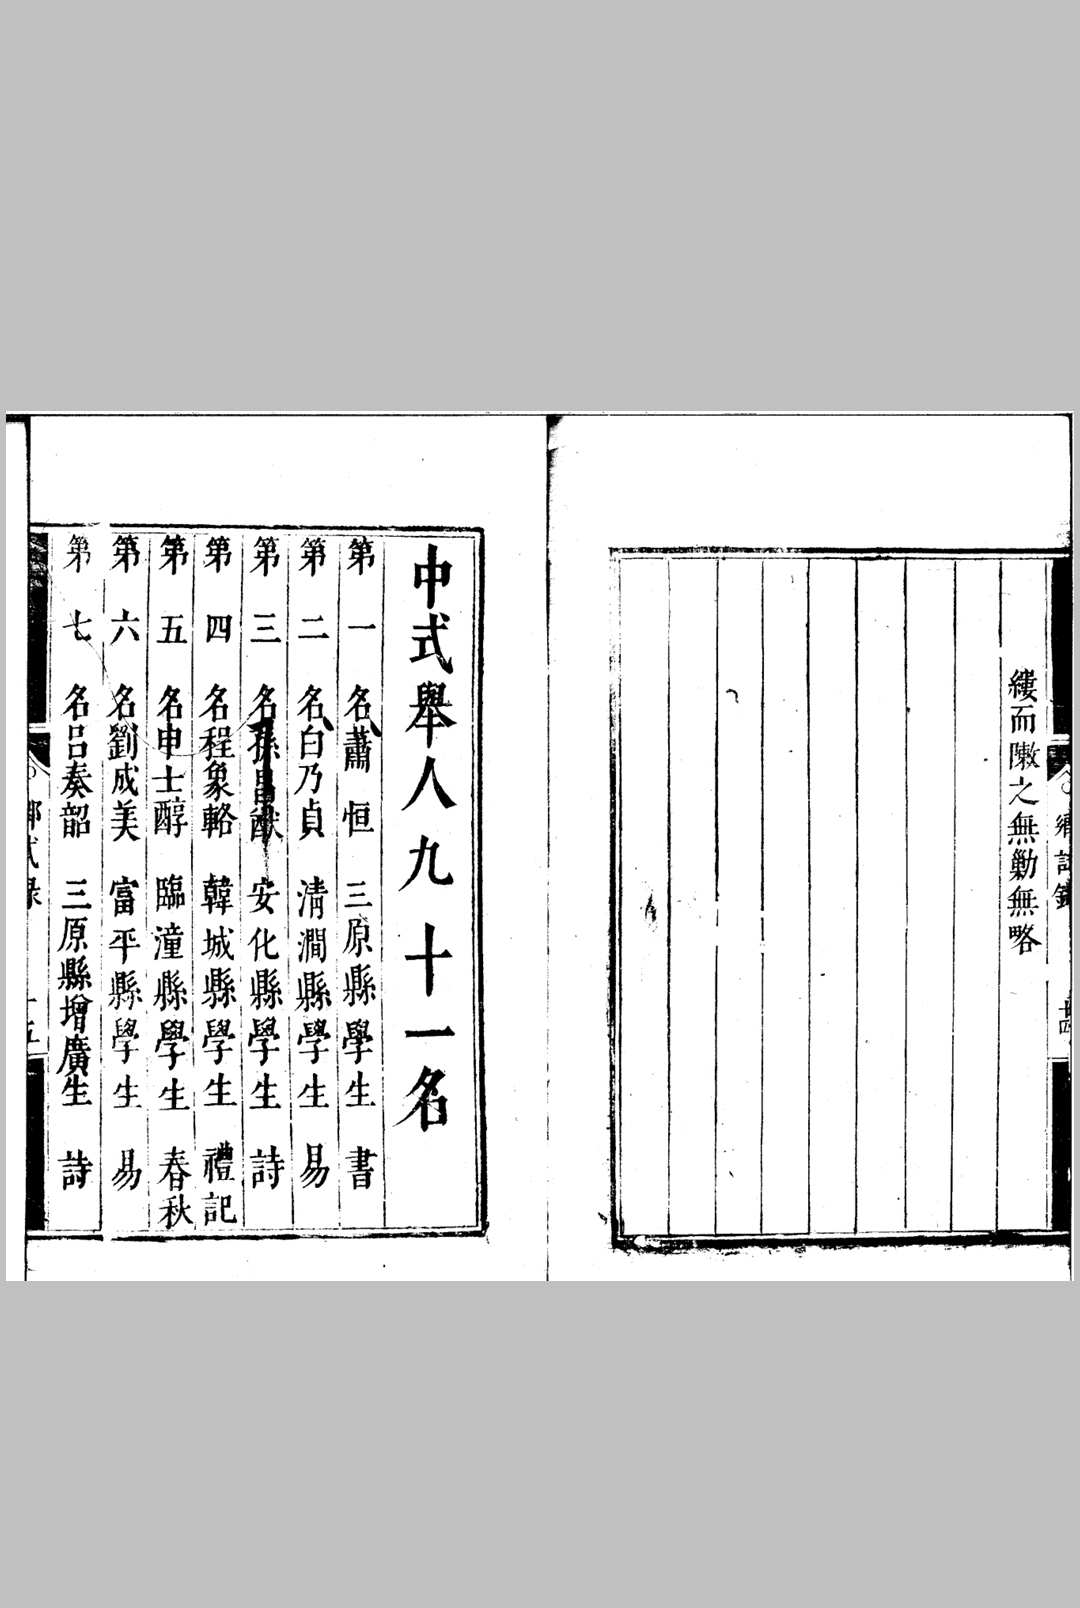 縷而陳之無勦無略
中式舉人九十一名
第一名蕭恒 三原縣學生 書
第二名白乃貞 清澗縣學生 易
第三名孫昌猷 安化縣學生 詩
第四名程象輅 韓城縣學生 禮記
第五名申士醇 臨潼縣學生 春秋
第六名劉成美 富平縣學生 易
第七名呂奏韶 三原縣增廣生 詩